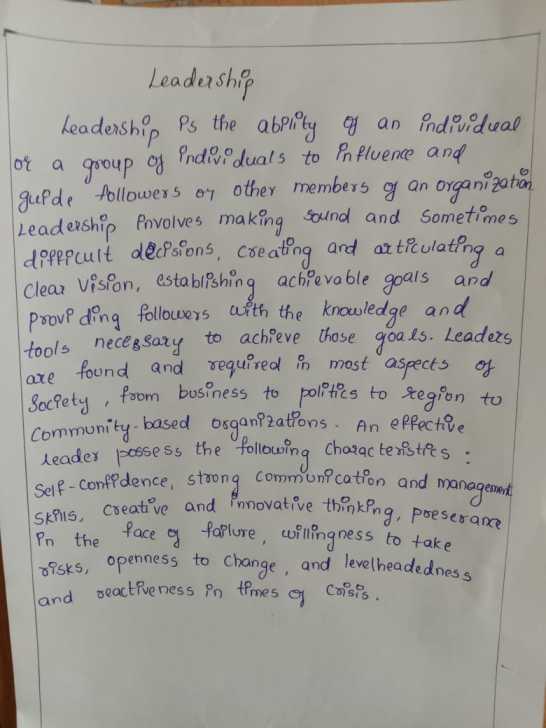 Leadership
Leadership is the ability of an individual
or a group of individuals to influence and
guide followers or other members of an organization
Leadership involves making sound and sometimes
difficult decisions, creating and articulating a
clear vision, establishing achievable goals and
providing followers with the knowledge and
tools necessary to achieve those goals. Leaders
are found and required in most aspects of
Society, from business to politics to region to
Community-based organizations. An effective
leader possess the following characteristics :
Self-confidence, strong communication and management
skills, creative and innovative thinking, preserance
in the face of failure, willingness to take
risks, openness to change, and levelheadedness
and reactiveness in times of crisis.